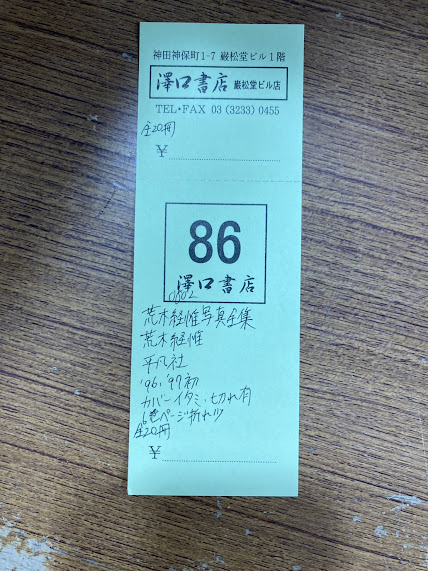 神田神保町1-7 巌松堂ビル1階
澤口書店 巌松堂ビル店
TEL・FAX 03 (3233) 0455
全20冊
￥
86
澤口書店
0802
荒木経惟写真全集
荒木経惟
平凡社
'96.'97初
カバーイタミ・切れ有
6巻ページ折れ少
全20冊
￥